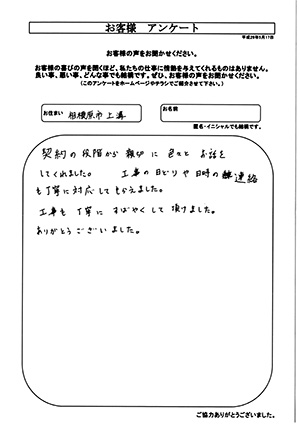 お客様　アンケート
平成29年3月17日
お客様の喜びの声をお聞かせください。
お客様の喜びの声を聞くほど、私たちの仕事に情熱を与えてくれるものはありません。
良い事、悪い事、どんな事でも結構です。ぜひ、お客様の声をお聞かせください。
（このアンケートをホームページやチラシでご紹介させて下さい。）
お住まい　相模原市上溝
お名前
匿名・イニシャルでも結構です。
契約の段階から親切に色々とお話を
してくれました。　工事の日どりや日時の連絡
も丁寧に対応してもらえました。
工事も丁寧にすばやくして頂けました。
ありがとうございました。
ご協力ありがとうございました。